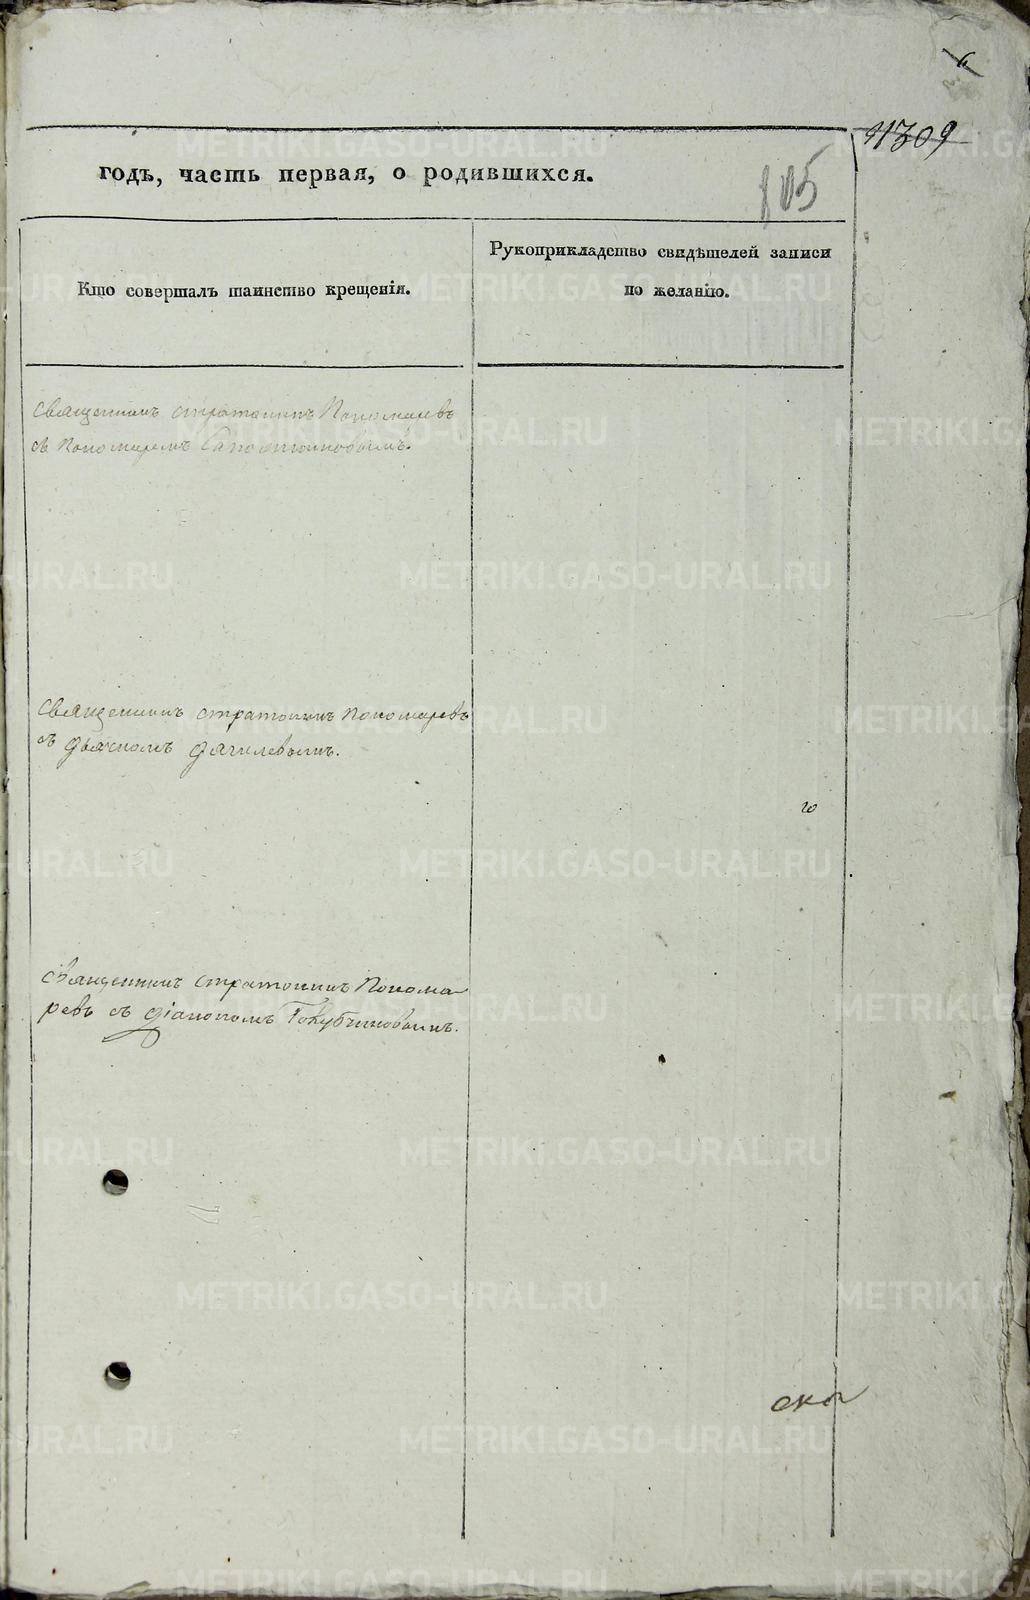 6
11309
годъ, часть первая, о родившихся.
105
Кто совершалъ таинство крещенія.
Рукоприкладство свидѣтелей записи
по желанію.
Священникъ стратоникъ Пономаревъ
съ Пономаремъ
Священникъ стратоникъ Пономаревъ
съ дьячкомъ дягилевымъ.
го
Священникъ стратоникъ Понома
ревъ съ діакономъ Голубчиковымъ.
ска
METRIKI.GASO-URAL.RU